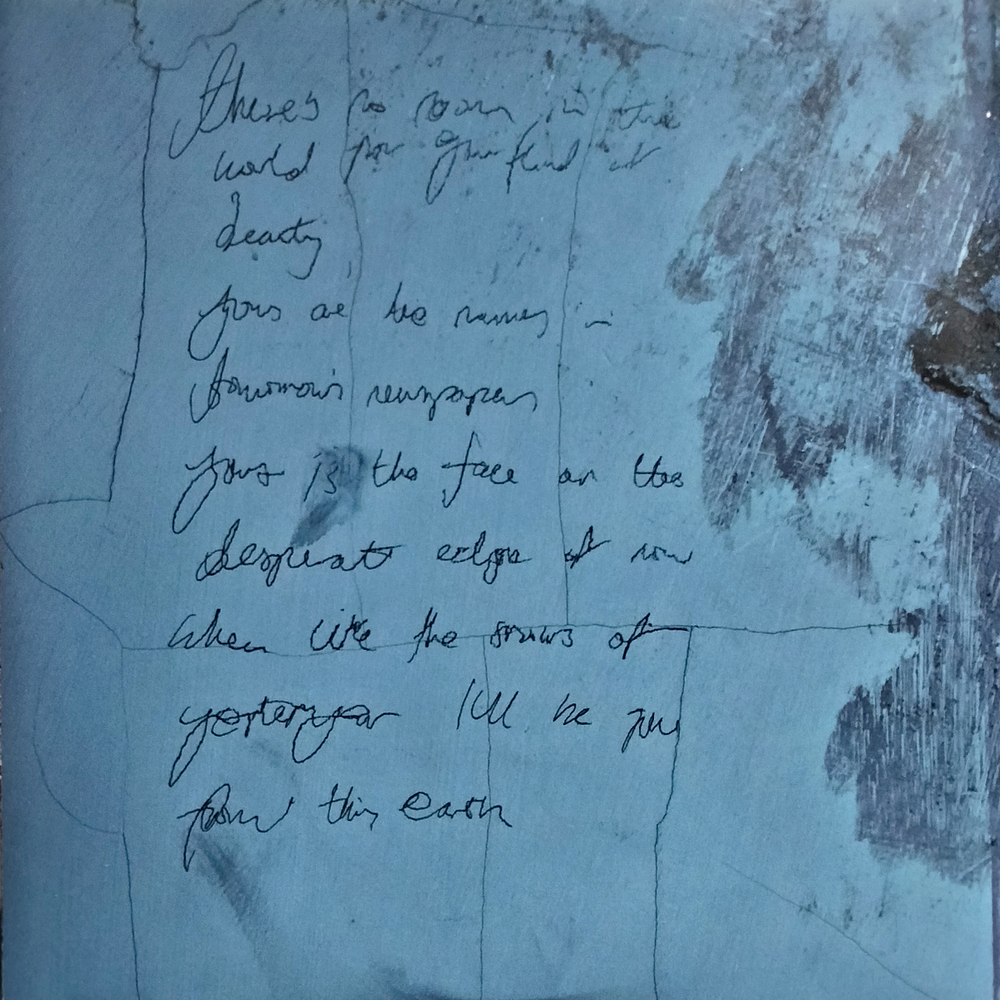 there's no room in this
world for your kind of
beauty
yours are the names in
tomorrow's newspapers
yours is the face on the
desperate edge of now
when like the snows of
yesteryear I'll be gone
from this earth